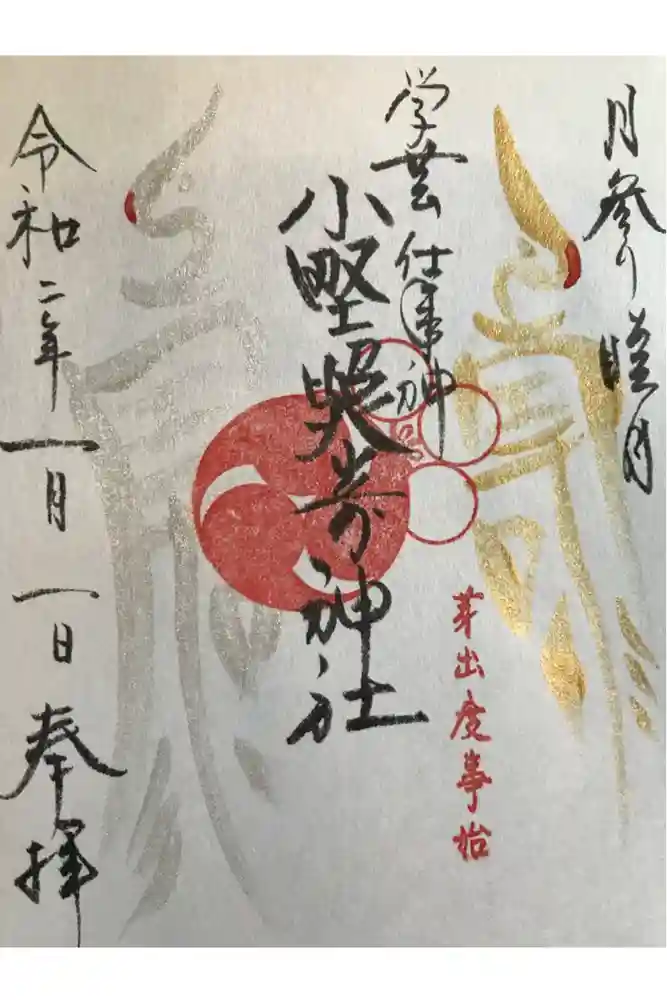 月参り 睦月
学芸 仕事神
芽出度事始
小野照崎神社
令和二年 一月 一日 奉拝